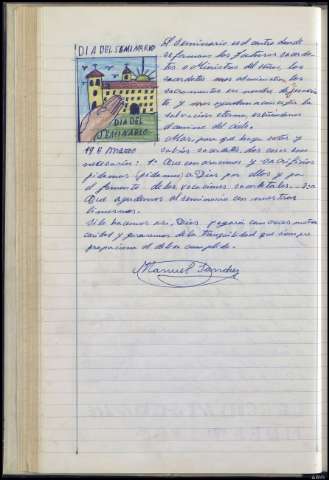 DIA DEL SEMINARIO
DIA DEL
SEMINARIO
19 E Marzo
El seminario es el centro donde
se forman los futuros sacerdo-
tes o Ministros del Señor, los
sacerdotes nos administran los
sacramentos en nombre de Jesucris-
to y nos ayudan a conseguir la
salvación eterna, enseñandonos
el camino del cielo.
Mas, para que haya santos y
sabios sacerdotes dos cosas son
necesarias: 1º Que con oraciones y sacrificios
pidamos (pidamos) a Dios por ellos y por
el fomento de las vocaciones sacerdotales. - 2º
Que ayudemos al seminario con nuestras
limosnas.
Si lo hacemos así, Dios pagará con creces nuestra
caridad y gozaremos de la tranquilidad que siempre
proporciona el deber cumplido.
Manuel Sanchez